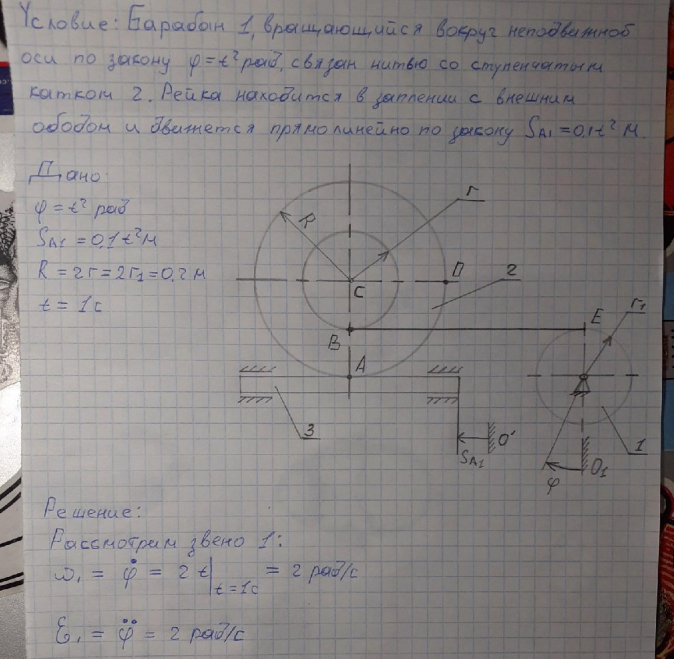 Условие: Барабан 1, вращающийся вокруг неподвижной
оси по закону φ = t² рад, связан нитью со ступенчатым
катком 2. Рейка находится в зацплении с внешним
ободом и движется прямолинейно по закону S_A1 = 0,1t² м.
Дано:
φ = t² рад
S_A1 = 0,1 t² м
R = 2r = 2r₁ = 0,2 м
t = 1 с
R
r
D
2
C
B
E
r₁
A
3
S_A1
O'
φ
O₁
1
Решение:
Рассмотрим звено 1:
ω₁ = φ̇ = 2t|t=1c = 2 рад/с
Ɛ₁ = φ̈ = 2 рад/с